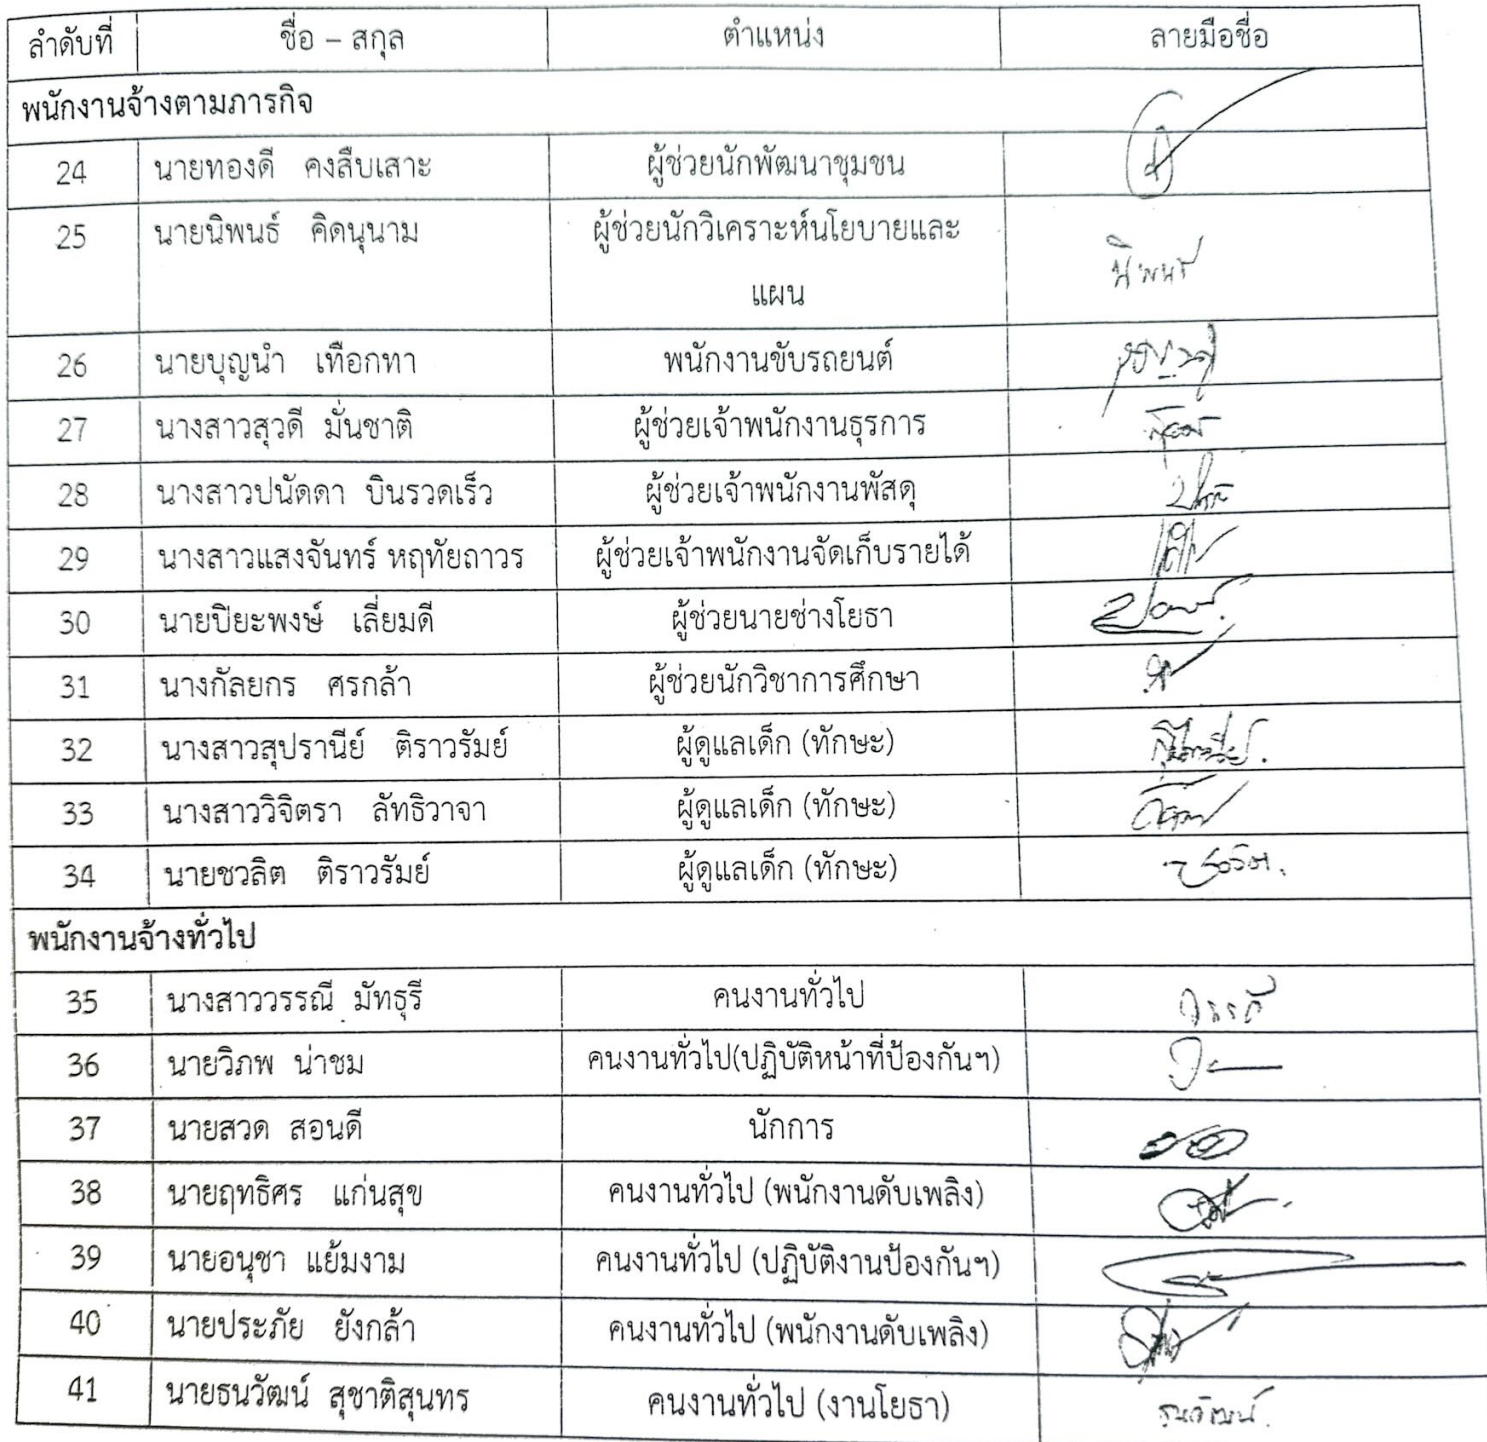 ลำดับที่ ชื่อ – สกุล ตำแหน่ง ลายมือชื่อ
พนักงานจ้างตามภารกิจ
24 นายทองดี คงสืบเสาะ ผู้ช่วยนักพัฒนาชุมชน
25 นายนิพนธ์ คิดนุนาม ผู้ช่วยนักวิเคราะห์นโยบายและ
แผน นิพนธ์
26 นายบุญนำ เทือกทา พนักงานขับรถยนต์
27 นางสาวสุวดี มั่นชาติ ผู้ช่วยเจ้าพนักงานธุรการ
28 นางสาวปนัดดา บินรวดเร็ว ผู้ช่วยเจ้าพนักงานพัสดุ
29 นางสาวแสงจันทร์ หฤทัยถาวร ผู้ช่วยเจ้าพนักงานจัดเก็บรายได้
30 นายปิยะพงษ์ เลี่ยมดี ผู้ช่วยนายช่างโยธา
31 นางกัลยกร ศรกล้า ผู้ช่วยนักวิชาการศึกษา
32 นางสาวสุปรานีย์ ติราวรัมย์ ผู้ดูแลเด็ก (ทักษะ)
33 นางสาววิจิตรา ลัทธิวาจา ผู้ดูแลเด็ก (ทักษะ)
34 นายชวลิต ติราวรัมย์ ผู้ดูแลเด็ก (ทักษะ)
พนักงานจ้างทั่วไป
35 นางสาววรรณี มัทธุรี คนงานทั่วไป
36 นายวิภพ น่าชม คนงานทั่วไป(ปฏิบัติหน้าที่ป้องกันฯ)
37 นายสวด สอนดี นักการ
38 นายฤทธิศร แก่นสุข คนงานทั่วไป (พนักงานดับเพลิง)
39 นายอนุชา แย้มงาม คนงานทั่วไป (ปฏิบัติงานป้องกันฯ)
40 นายประภัย ยังกล้า คนงานทั่วไป (พนักงานดับเพลิง)
41 นายธนวัฒน์ สุชาติสุนทร คนงานทั่วไป (งานโยธา) ธนวัฒน์